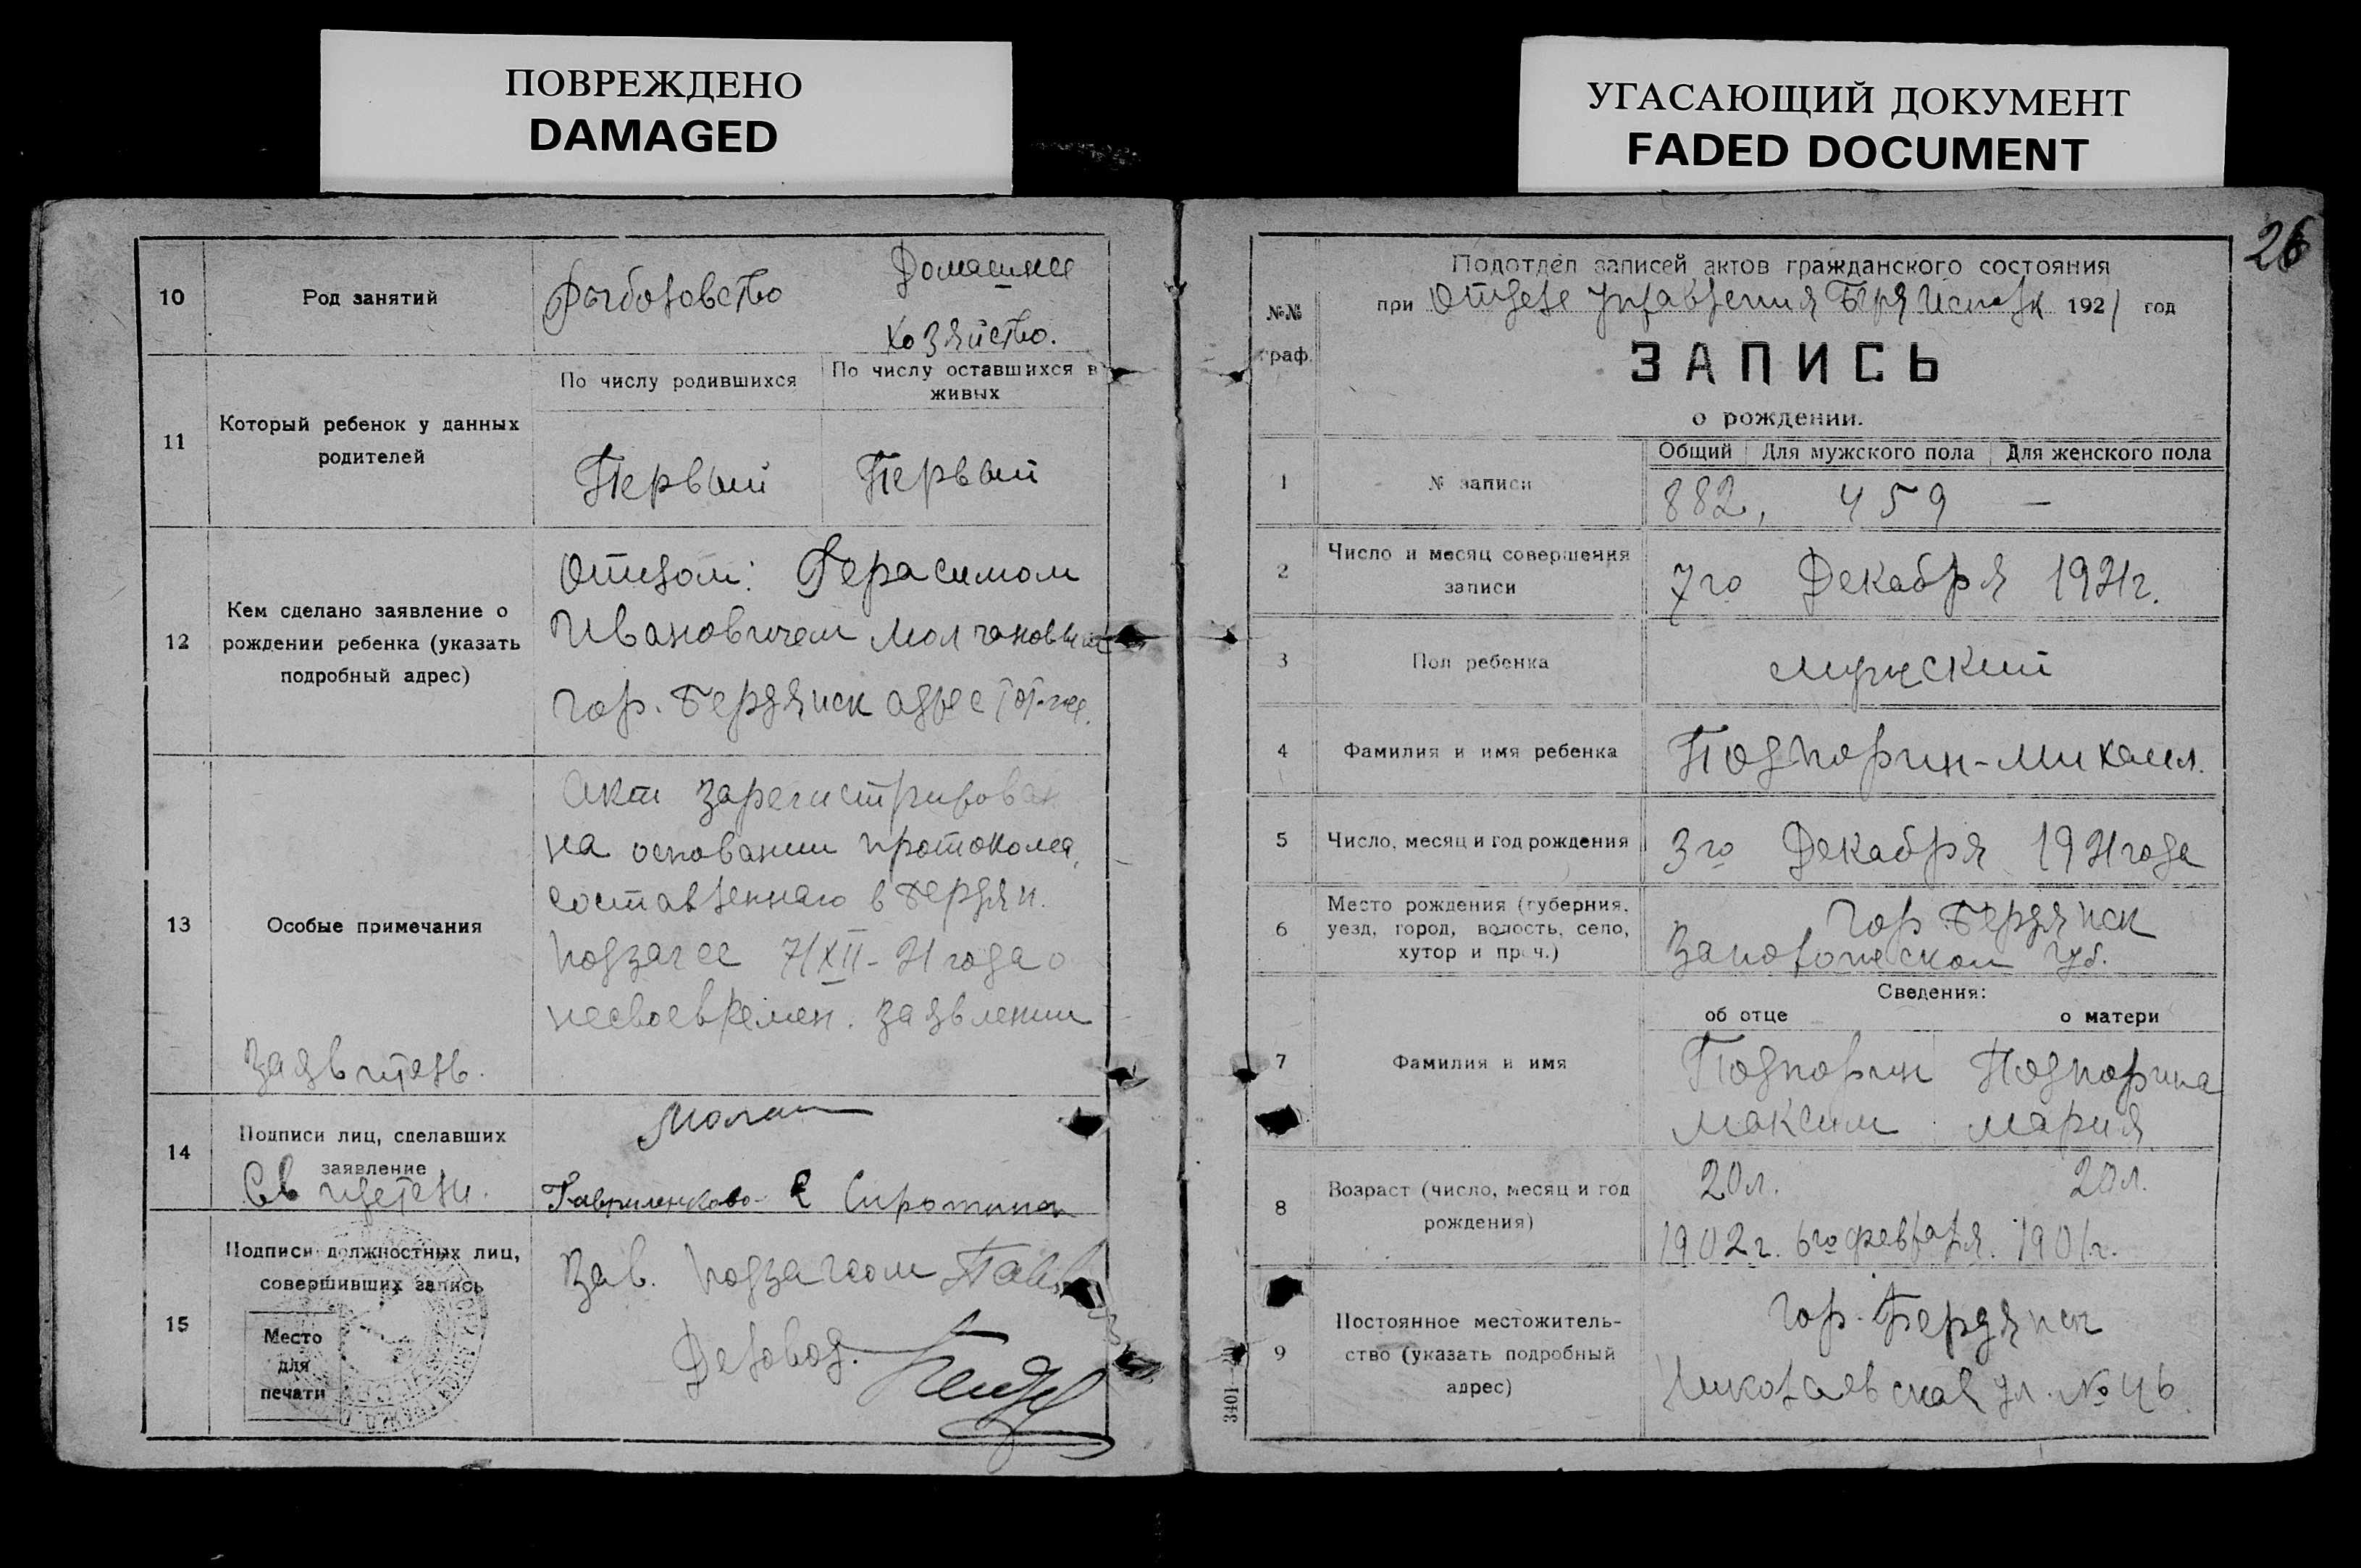 ПОВРЕЖДЕНО
DAMAGED
УГАСАЮЩИЙ ДОКУМЕНТ
FADED DOCUMENT
10
Род занятий
Рыболовство
Домашнее
хозяйство.
11
Который ребенок у данных
родителей
По числу родившихся
По числу оставшихся в
живых
Первый
Первый
12
Кем сделано заявление о
рождении ребенка (указать
подробный адрес)
Отцом: Герасимом
Ивановичем Молчановым
гор. Бердянск адрес тот-же.
13
Особые примечания
Акт зарегистрирован
на основании протокола,
составленнаго в Бердян.
подзагсе 7/XII-21 года о
несвоевремен. заявлении
Заявитель.
14
Подписи лиц, сделавших
заявление
Свидетели.
Гавриленково
Сиротина
15
Подписи должностных лиц,
совершивших запись
Место
для
печати
Зав. подзагсом
Деловод.
26
№№
граф.
Подотдел записей актов гражданского состояния
при Отделе Управления 1921 год
ЗАПИСЬ
о рождении.
1
№ записи
Общий
Для мужского пола
Для женского пола
882, 459 —
2
Число и месяц совершения
записи
7го Декабря 1921г.
3
Пол ребенка
мужский
4
Фамилия и имя ребенка
Подпорин-Михаил.
5
Число, месяц и год рождения
3го Декабря 1921 года
6
Место рождения (губерния,
уезд, город, волость, село,
хутор и проч.)
гор. Бердянск
Запорожской губ.
7
Фамилия и имя
Сведения:
об отце
о матери
Подпорин Подпорина
Максим Мария
8
Возраст (число, месяц и год
рождения)
20л. 20л.
1902г. 6го февраля. 1901г.
9
Постоянное местожитель-
ство (указать подробный
адрес)
гор. Бердянск
Николаевская ул. № 46
3401